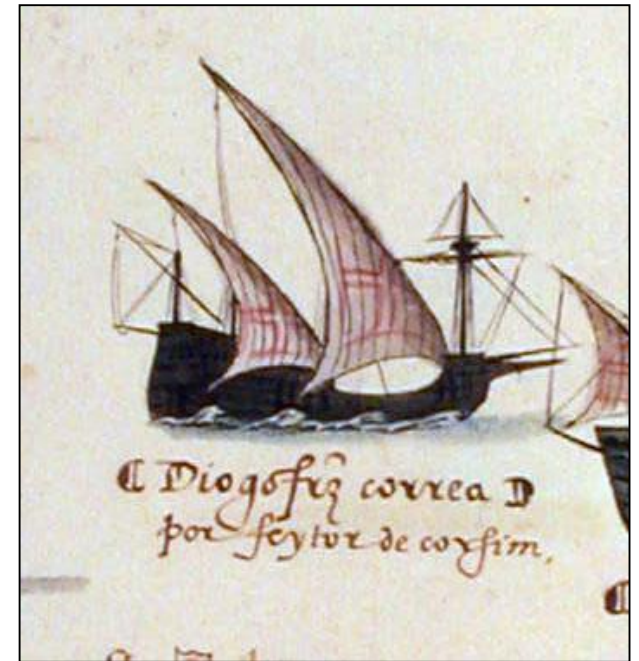 Diogo frz̃ correa
por feytor de coxsim,